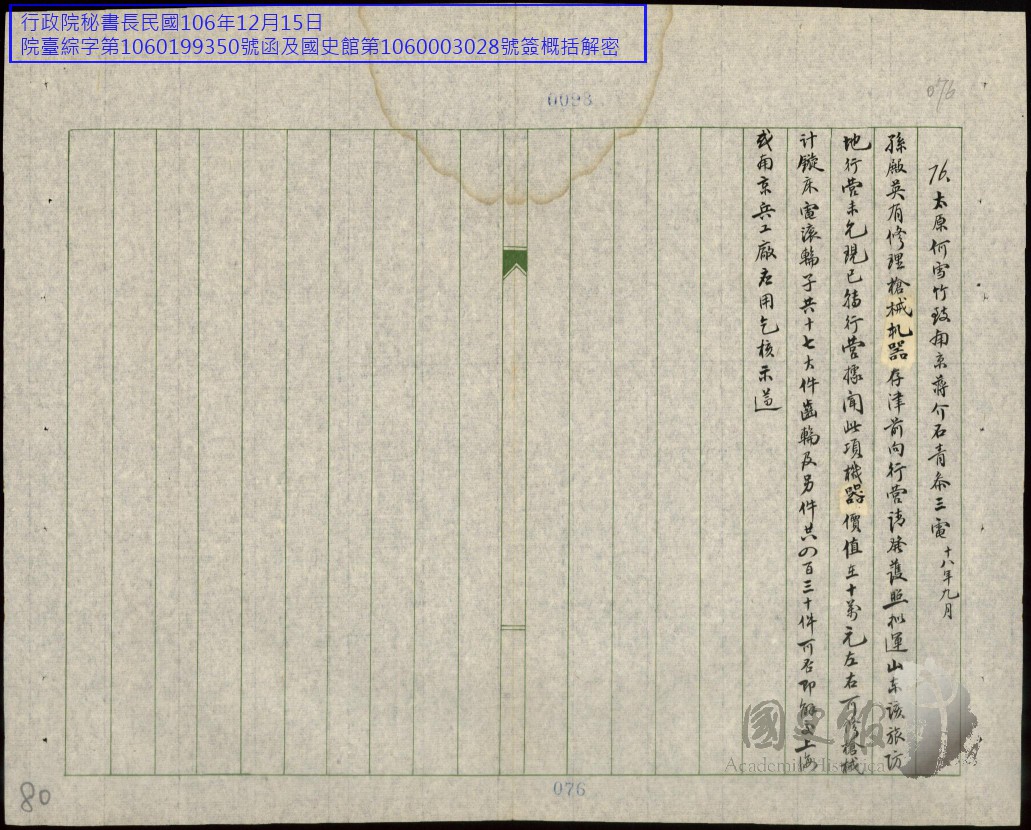 行政院秘書長民國106年12月15日
院臺綜字第1060199350號函及國史館第1060003028號簽概括解密
0093
076
76、太原何雪竹致南京蔣介石青叅三電 十八年九月
孫殿英有修理槍械机器存津前向行營請發護照拟運山东該旅防
地行營未允現已稿行營據聞此項機器價值在十萬元左右可修槍械
计鏇床電滚輪子共十七大件齒輪及另件共四百三十件可否即解交上海
或南京兵工廠应用乞核示遵
國史館
Academia Historica
076
80